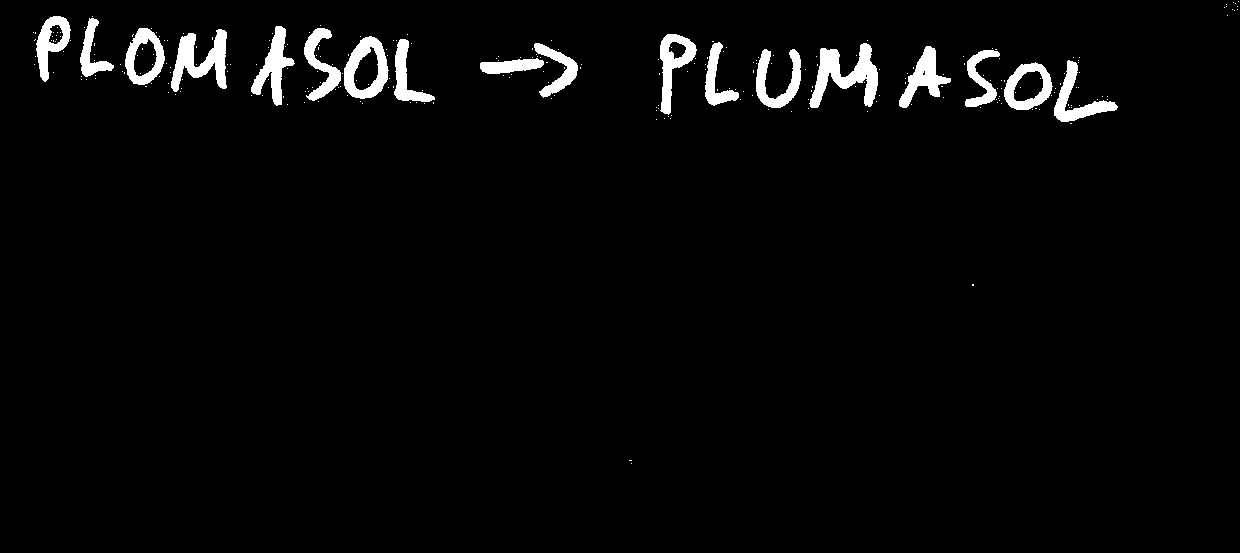 PLOMASOL → PLUMASOL